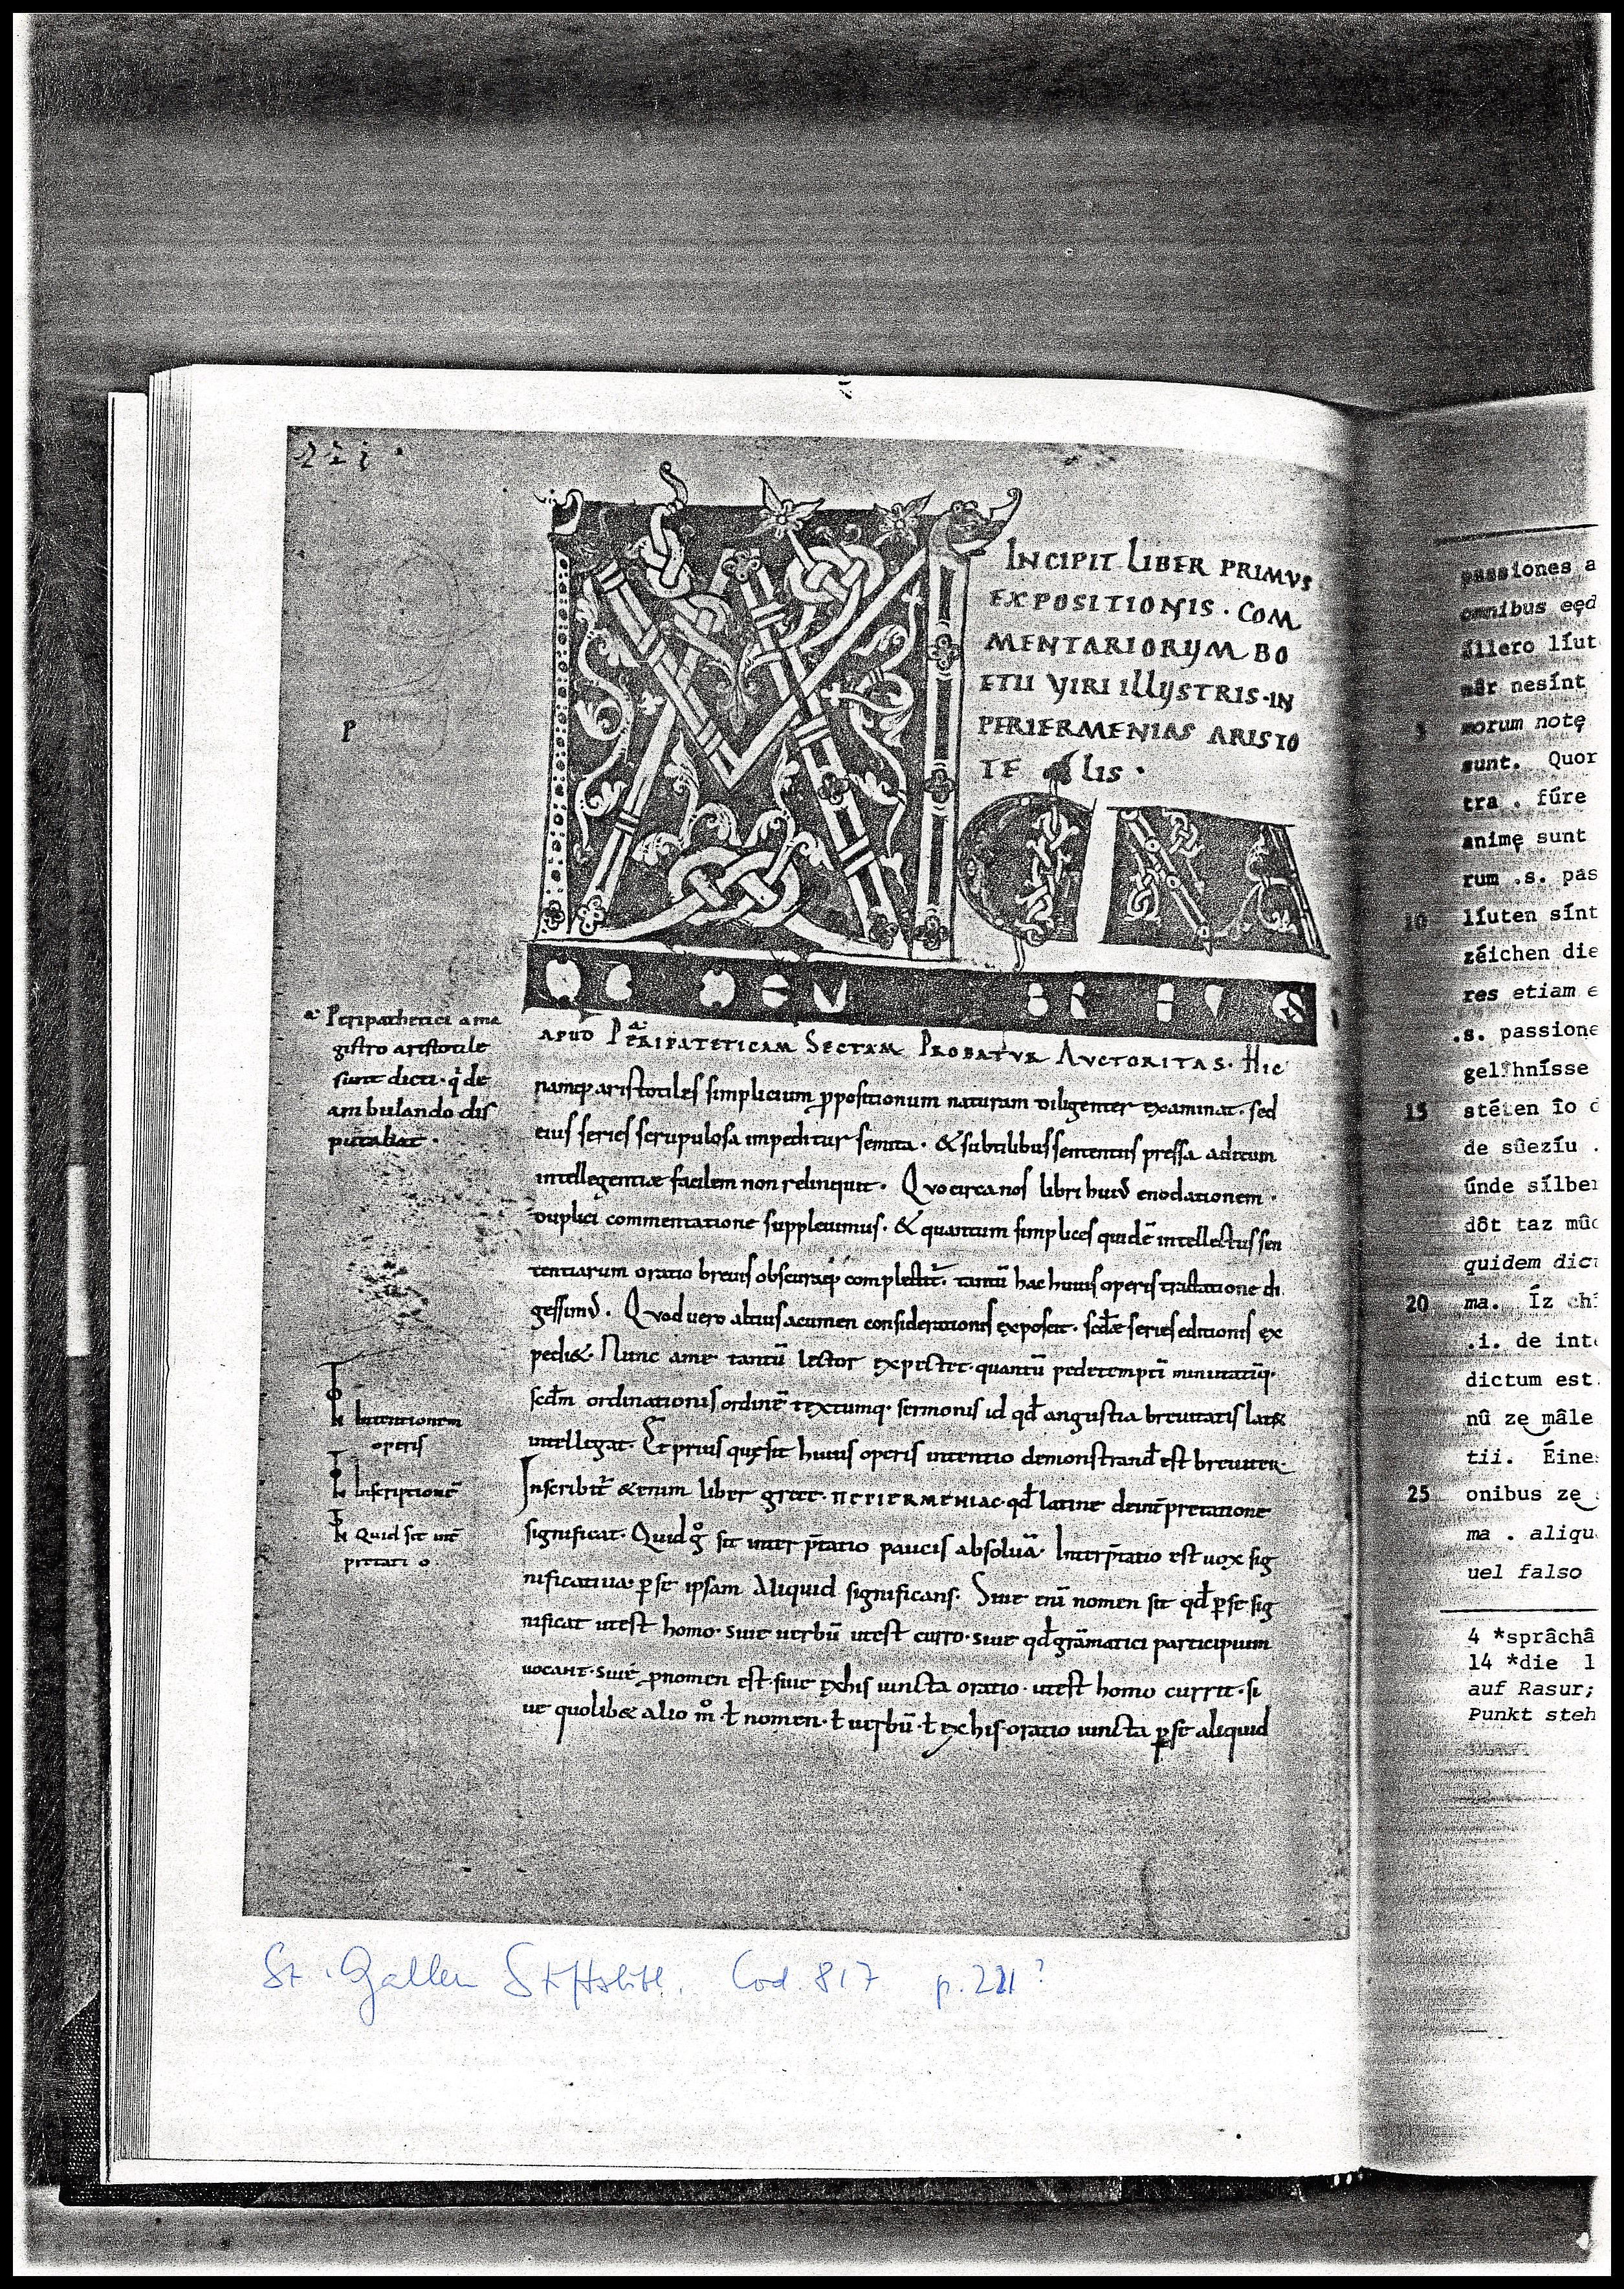 221.
INCIPIT LIBER PRIMVS
EXPOSITIONIS · COM
MENTARIORVM BO
ETII VIRI ILLVSTRIS · IN
PERIERMENIAS ARISTO
TE LIS ·
MAGNA
p
APUD PERIPATETICAM SECTAM PROBATVR AVCTORITAS · Hic
namq; aristotiles simplicium ppositionum naturam diligenter examinat · sed
eius series scrupulosa impeditur semita · & subtilibus sententiis pressa aditum
intellegentiæ facilem non relinquit · Quo circa nos libri huiꝰ enodationem ·
duplici commentatione supplevimus · & quantum simplices quidē intellectus sen
tentiarum oratio brevis obscuraq; complectit̄ · tantū hac huius operis tractatione di
gessimꝰ · Quod vero altius acumen considerationis exposcit · scd̄æ series editionis ex
pedi& · Nunc a me tantū lector expectet · quantū pedetemptī minutatīq;
scd̄m ordinationis ordinē textumq; sermonis id qd̄ angustia brevitatis lat&
intellegat · Et prius quę sit huius operis intentio demonstrand̄ est breviter ·
Inscribit̄ &enim liber grece · ΠΕΡΙΕΡΜΕΝΙΑC · qd̄ latine de int̄pretatione
significat · Quid gͦ sit inter p̄tatio paucis absoluā · Interp̄tatio est vox sig
nificativa · ꝑ se ipsam Aliquid significans · Sive enī nomen sit qd̄ ꝑ se sig
nificat ut est homo · sive verbū ut est curro · sive qd̄ grāmatici participium
vocant · sive pnomen est · sive ex his iuncta oratio · ut est homo currit · si
ve quolib& alio mͦ · ł nomen · ł verbū · ł ex his oratio iuncta ꝑ se aliquid
a· Peripathetici a ma
gistro aristotile
sunt dicti · q de
ambulando dis
putabat ·
Intentionem
operis
Inscriptionē
Quid sit int̄
pretati o ·
St. Gallen Stiftsbibl. Cod. 817 p. 221?
passiones a
omnibus eęd
állero líut
nesínt
5 morum notę
sunt. Quor
tra . fúre
animę sunt
rum .s. pas
10 líuten sínt
zéichen die
res etiam e
.s. passione
gelíhnísse
15 stéten îo d
de sûezíu .
únde sílbe
dôt taz mûo
quidem dic
20 ma. Íz chí
.i. de int
dictum est.
nû ze mâle
tii. Éine
25 onibus ze
ma . aliqu
uel falso
4 *sprâchâ
14 *die l
auf Rasur;
Punkt steh